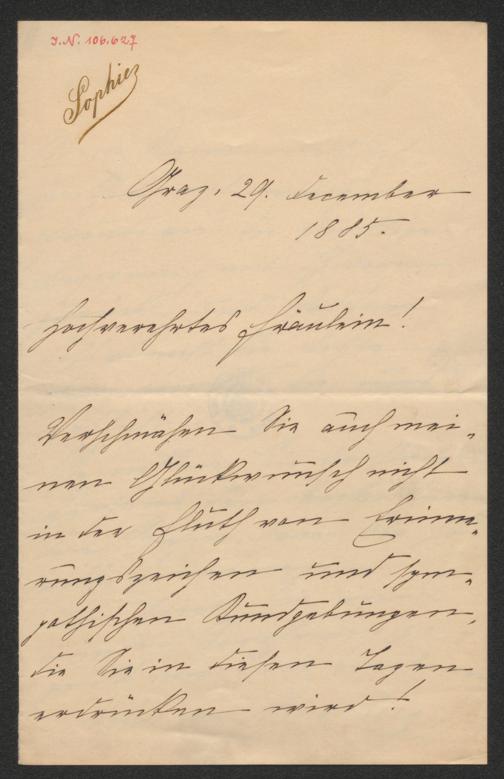 J.N. 106.627
Sophie
Graz, 29. December
1885.
Hochverehrtes Fräulein!
Verschmähen Sie auch mei-
nen Glückwunsch nicht
in der Fluth von Erinne-
rungszeichen und sym-
pathischen Kundgebungen,
die Sie in diesen Tagen
erdrücken wird!